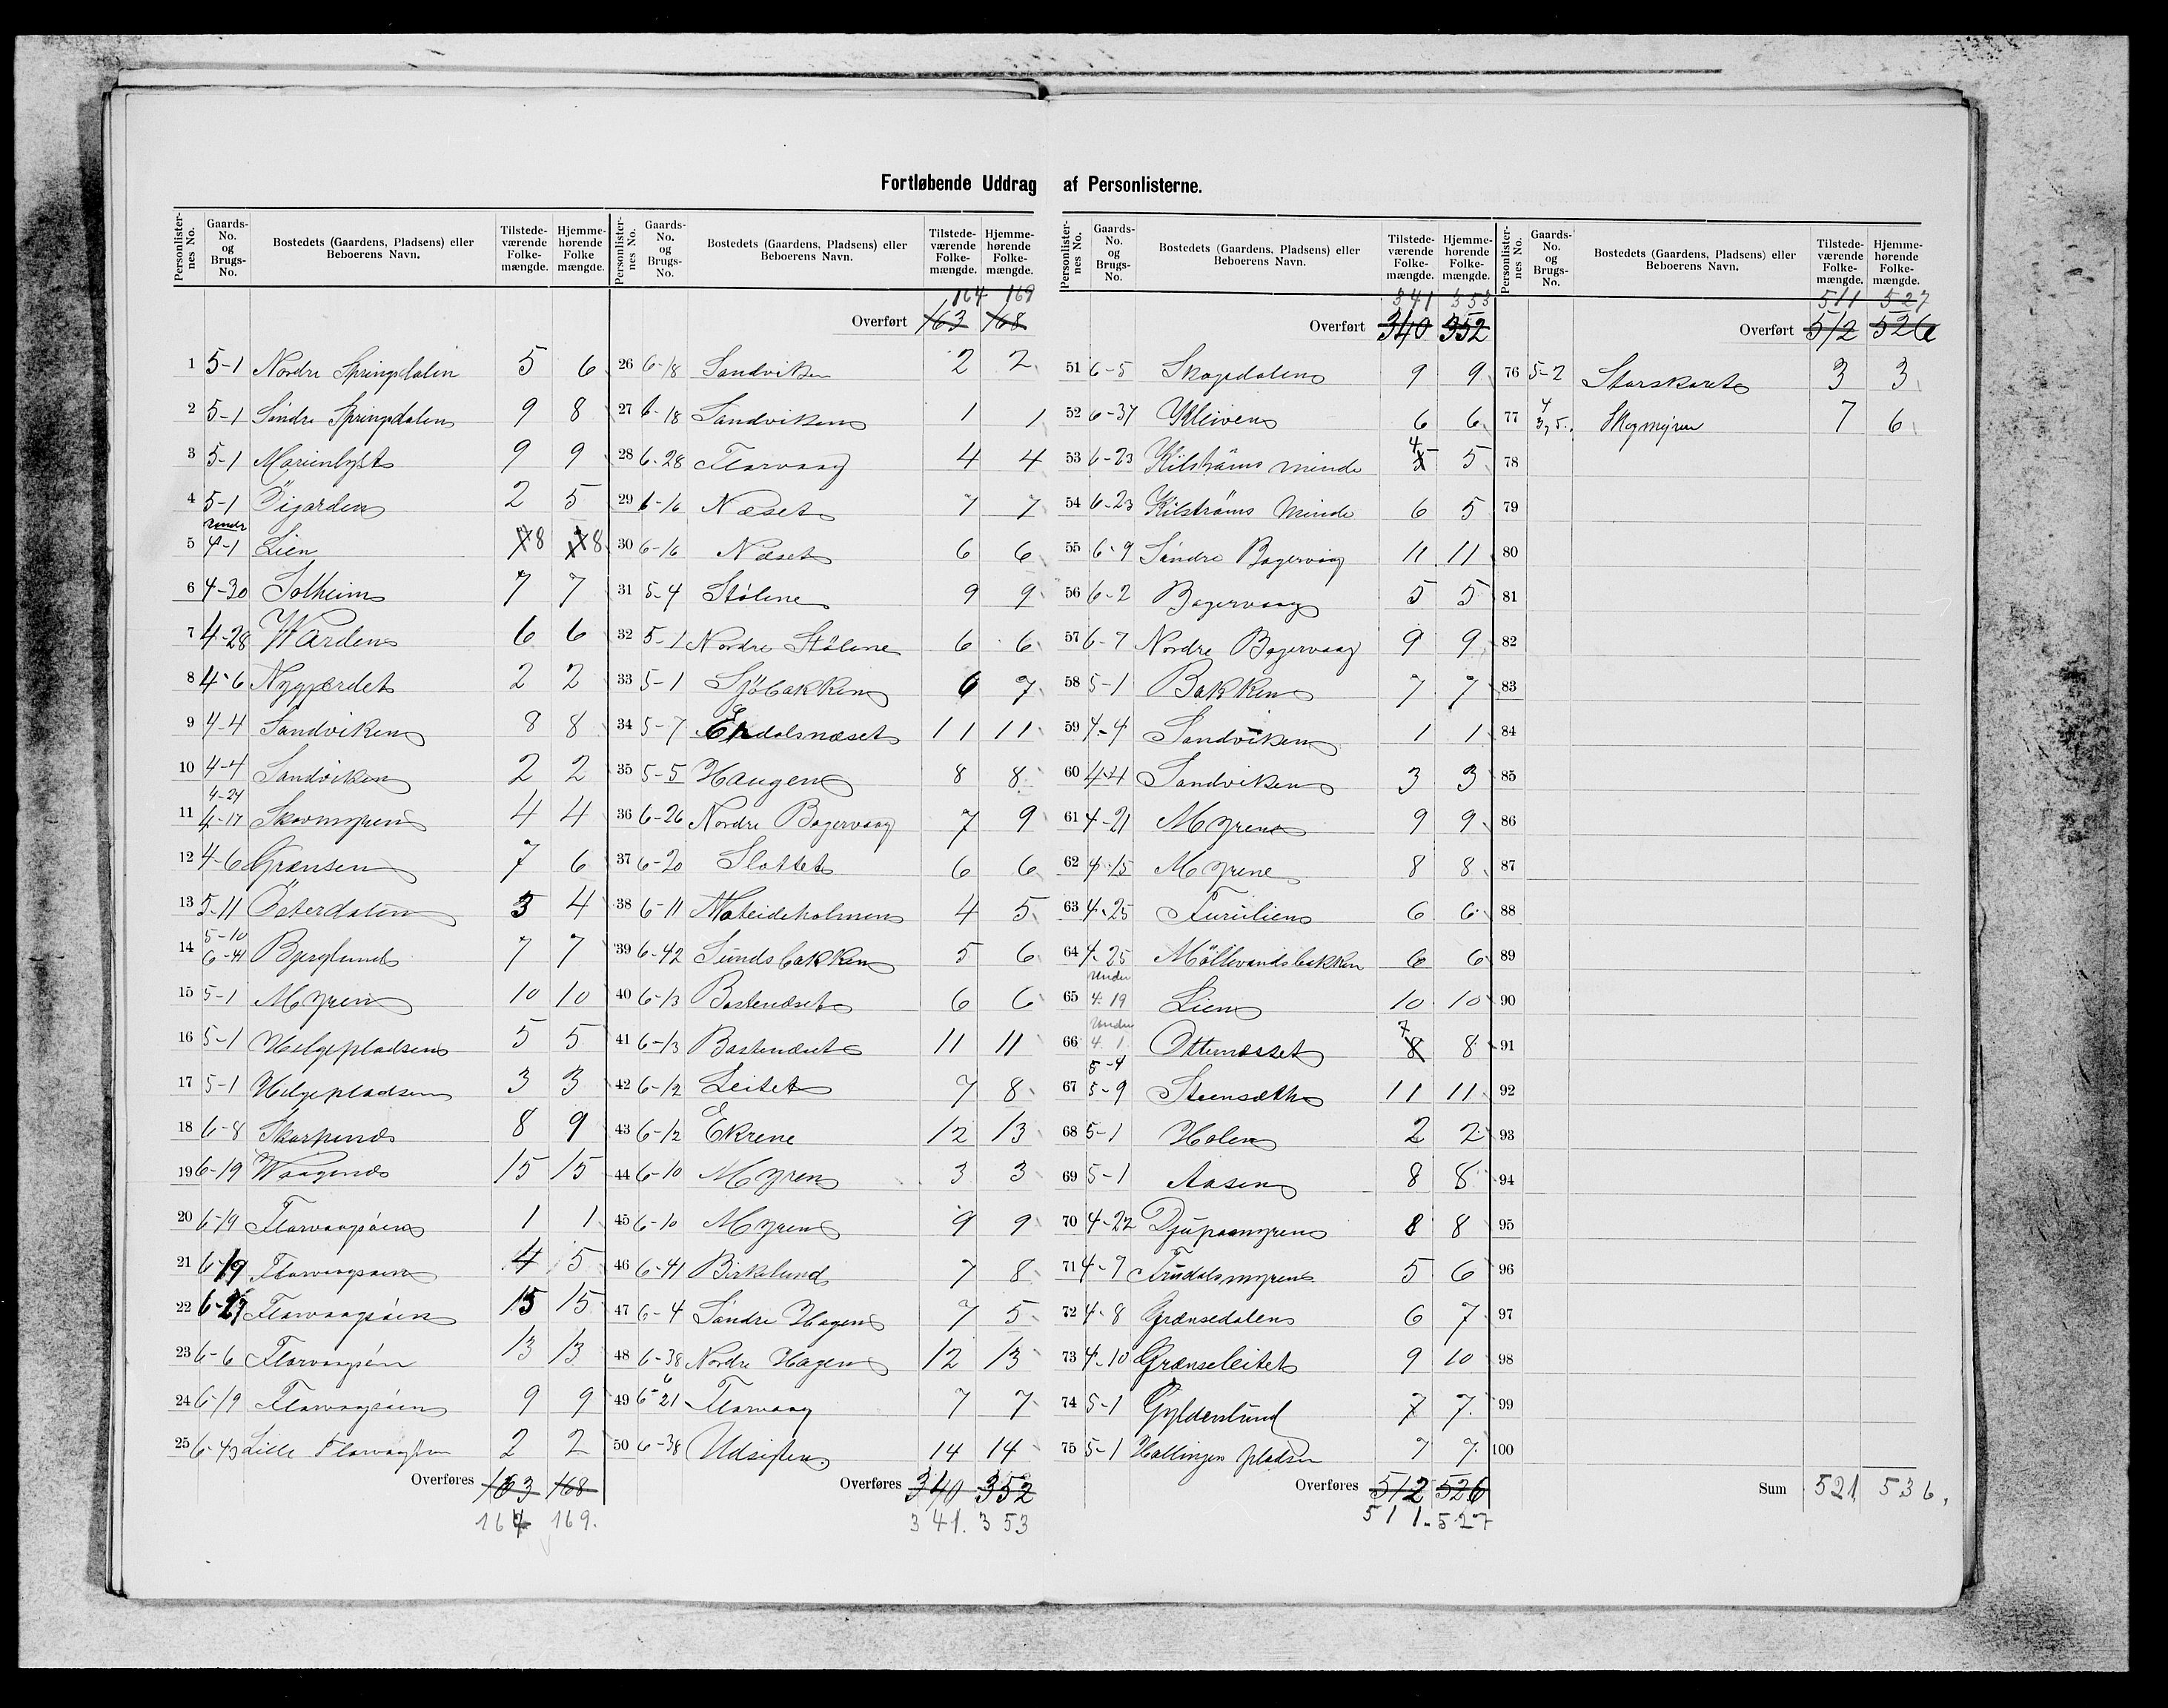 Fortløbende Uddrag af Personlisterne.
Personlisternes No. Gaards-No. og Brugs-No. Bostedets (Gaardens, Pladsens) eller Beboerens Navn. Tilstedeværende Folkemængde. Hjemmehørende Folkemængde.
1 5-1 Nordre Springdalen 5 6
2 5-1 Söndre Springdalen 9 8
3 5-1 Marienlyst 9 9
4 5-1 Öigarden 2 5
5 under 4-1 Lien 8 8
6 4-30 Solheim 7 7
7 4-28 Warden 6 6
8 4-6 Nygjærdet 2 2
9 4-4 Sandviken 8 8
10 4-4 Sandviken 2 2
11 4-24 4-17 Skovmyren 4 4
12 4-6 Grænsen 7 6
13 5-11 Österdalen 3 4
14 5-10 6-44 Bjerglund 7 7
15 5-1 Myren 10 10
16 5-1 Helgepladsen 5 5
17 5-1 Helgepladsen 3 3
18 6-8 Skarpenes 8 9
19 6-19 Waagenes 15 15
20 6-19 Florvaagöen 1 1
21 6-19 Florvaagöen 4 5
22 6-27 Florvaagöen 15 15
23 6-6 Florvaagöen 13 13
24 6-19 Florvaagöen 9 9
25 6-43 Lille Florvagöen 2 2
Overføres 163 168
164 169.
Personlisternes No. Gaards-No. og Brugs-No. Bostedets (Gaardens, Pladsens) eller Beboerens Navn. Tilstedeværende Folkemængde. Hjemmehørende Folkemængde.
164 169
Overført 163 168
26 6-18 Sandviken 2 2
27 6-18 Sandviken 1 1
28 6-28 Florvaag 4 4
29 6-16 Næset 7 7
30 6-16 Næset 6 6
31 5-4 Stölene 9 9
32 5-1 Nordre Stölene 6 6
33 5-1 Sjöbakken 6 7
34 5-7 Erdalsnæset 11 11
35 5-5 Haugen 8 8
36 6-26 Nordre Bagervaag 7 9
37 6-20 Slottet 6 6
38 6-11 Mateideholmen 4 5
39 6-42 Sundsbakken 5 6
40 6-13 Bastenæset 6 6
41 6-13 Bastenæset 11 11
42 6-12 Leitet 7 8
43 6-12 Ekrene 12 13
44 6-10 Myren 3 3
45 6-10 Myren 9 9
46 6-41 Birkelund 7 8
47 6-4 Söndre Hagen 7 5
48 6-38 Nordre Hagen 12 13
49 6-21 Florvaag 7 7
50 6-38 Udsigten 14 14
Overføres 340 352
341. 353
Personlisternes No. Gaards-No. og Brugs-No. Bostedets (Gaardens, Pladsens) eller Beboerens Navn. Tilstedeværende Folkemængde. Hjemmehørende Folkemængde.
341 353
Overført 340 352
51 6-5 Skogedalen 9 9
52 6-37 Kleiven 6 6
53 6-23 Kilströms minde 4 5 5
54 6-23 Kilströms Minde 6 5
55 6-9 Söndre Bagervaag 11 11
56 6-2 Bagervaag 5 5
57 6-7 Nordre Bagervaag 9 9
58 5-1 Bakken 7 7
59 4-4 Sandviken 1 1
60 4-4 Sandviken 3 3
61 4-21 Myrene 9 9
62 4-15 Myrene 8 8
63 4-25 Furulien 6 6
64 4-25 Möllevandsbakken 6 6
65 under 4-19 Lien 10 10
66 under 4-1 Otternæsset 7 8 8
67 5-4 5-9 Steensæth 11 11
68 5-1 Holen 2 2
69 5-1 Aasen 8 8
70 4-22 Djupaamyren 8 8
71 4-7 Frudalsmyren 5 6
72 4-8 Grænsedalen 6 7
73 4-10 Grænseleitet 9 10
74 5-1 Gyldenlund 7 7
75 5-1 Hallingen pladsen 7 7
Overføres 512 526
511. 527
Personlisternes No. Gaards-No. og Brugs-No. Bostedets (Gaardens, Pladsens) eller Beboerens Navn. Tilstedeværende Folkemængde. Hjemmehørende Folkemængde.
511 527
Overført 512 526
76 5-2 Storskaret 3 3
77 4 3, 5. Skogmyren 7 6
78
79
80
81
82
83
84
85
86
87
88
89
90
91
92
93
94
95
96
97
98
99
100
Sum 521 536.